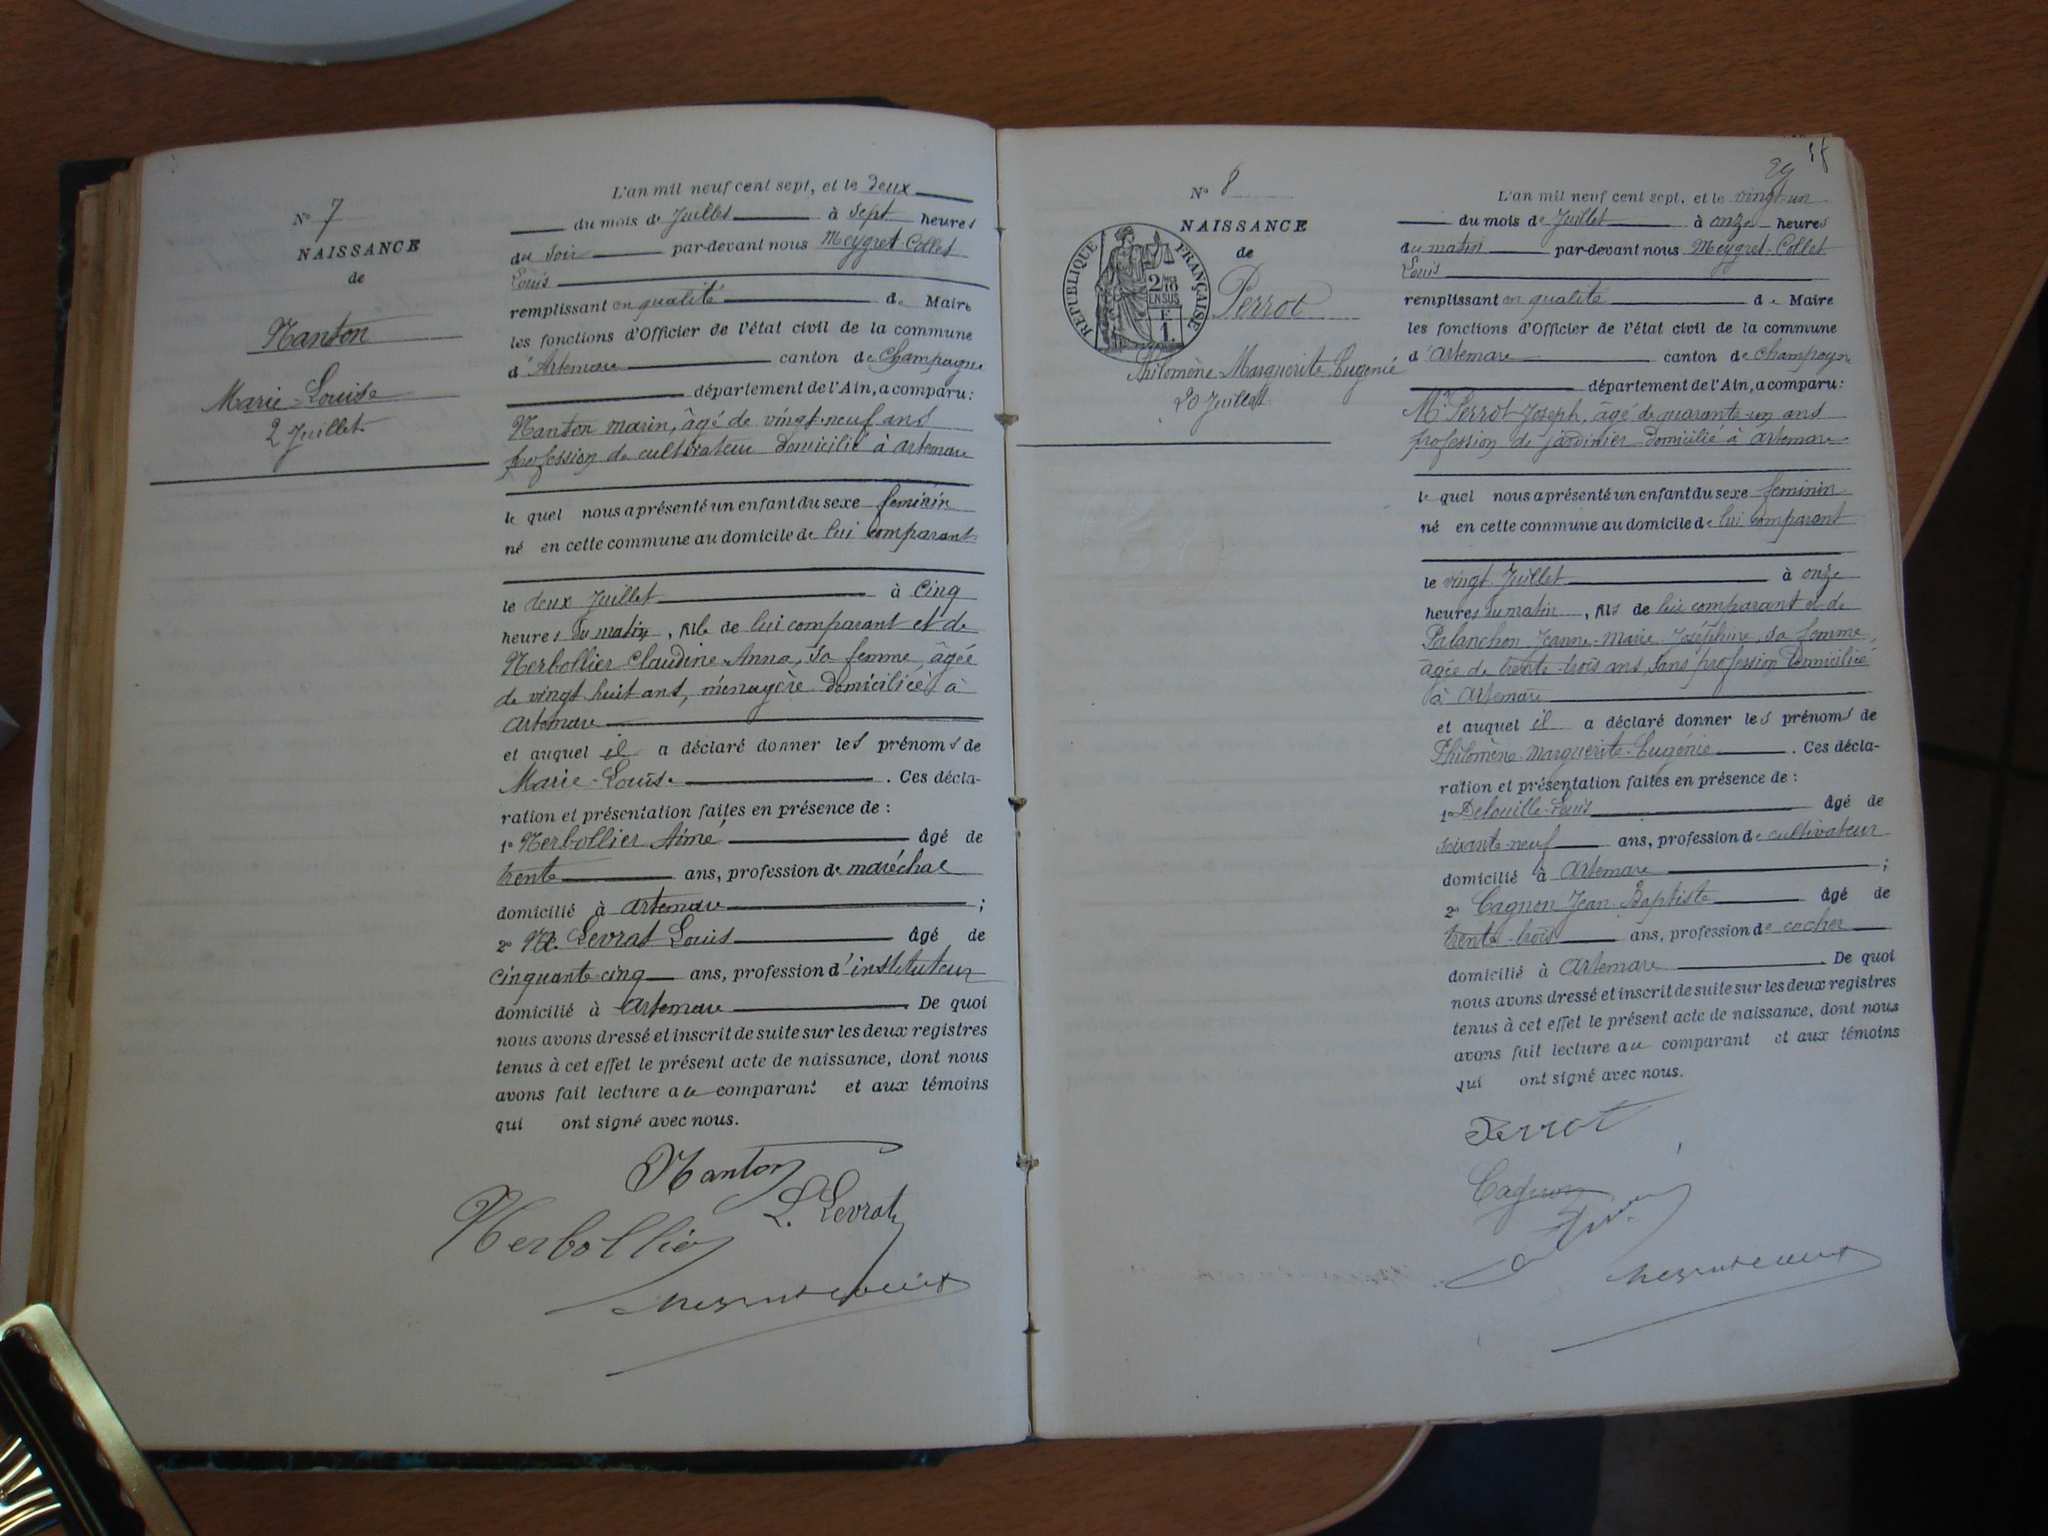 N° 7
NAISSANCE
de
Nanton
Marie-Louise
2 Juillet
L'an mil neuf cent sept, et le deux
du mois de Juillet à sept heures
du soir par-devant nous Meygret-Collet
Louis
remplissant en qualité de Maire
les fonctions d'Officier de l'état civil de la commune
d'Artemare canton de Champagne
département de l'Ain, a comparu:
Nanton marin, âgé de vingt-neuf ans
profession de cultivateur domicilié à Artemare
lequel nous a présenté un enfant du sexe feminin
né en cette commune au domicile de lui comparant
le deux Juillet à cinq
heures du matin, fille de lui comparant et de
Nerbollier Claudine Anna, sa femme, âgée
de vingt huit ans, ménagère domiciliée à
Artemare
et auquel il a déclaré donner les prénoms de
Marie-Louise. Ces décla-
ration et présentation faites en présence de :
1° Nerbollier Aimé âgé de
trente ans, profession de maréchal
domicilié à Artemare ;
2° Levrat Louis âgé de
cinquante-cinq ans, profession d'instituteur
domicilié à Artemare. De quoi
nous avons dressé et inscrit de suite sur les deux registres
tenus à cet effet le présent acte de naissance, dont nous
avons fait lecture au comparant et aux témoins
qui ont signé avec nous.
Nanton
L. Levrat
Nerbollier
29
N° 8
NAISSANCE
de
RÉPUBLIQUE FRANÇAISE
Perrot
Philomène Marguerite Eugénie
20 Juillet
L'an mil neuf cent sept, et le vingt-un
du mois de Juillet à onze heures
du matin par-devant nous Meygret-Collet
Louis
remplissant en qualité de Maire
les fonctions d'Officier de l'état civil de la commune
d'Artemare canton de Champagne
département de l'Ain, a comparu:
Mr Perrot Joseph, âgé de quarante-un ans
profession de jardinier domicilié à Artemare
lequel nous a présenté un enfant du sexe feminin
né en cette commune au domicile de lui comparant
le vingt Juillet à onze
heures du matin, fils de lui comparant et de
Palanchon Jeanne-Marie Joséphine, sa femme,
âgée de trente-trois ans, sans profession domiciliée
à Artemare
et auquel il a déclaré donner les prénoms de
Philomène Marguerite-Eugénie. Ces décla-
ration et présentation faites en présence de :
1° Delouille Louis âgé de
soixante-neuf ans, profession de cultivateur
domicilié à Artemare ;
2° Cagnon Jean Baptiste âgé de
trente-trois ans, profession de cocher
domicilié à Artemare. De quoi
nous avons dressé et inscrit de suite sur les deux registres
tenus à cet effet le présent acte de naissance, dont nous
avons fait lecture au comparant et aux témoins
qui ont signé avec nous.
Perrot
Cagnon